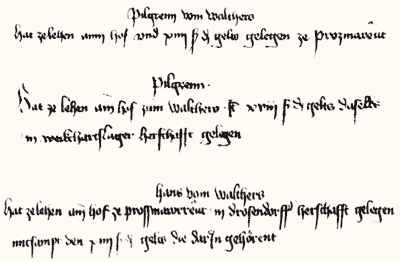 Pilgreim von walthers
hat zelehen ainn hof vnd xiiii ß d gelts gelegen ze Prozmarëut
Pilgreim
Hat ze lehen ain hof zum walthers xviii ß d gelts daselbs
in weikkhartslager herschafft gelegen
hans vom walthers
hat zelehen ain hof ze prossmarreut in drosendorff herschafft gelegen
mitsampt den x iiii ß d gelts die darIn gehörent